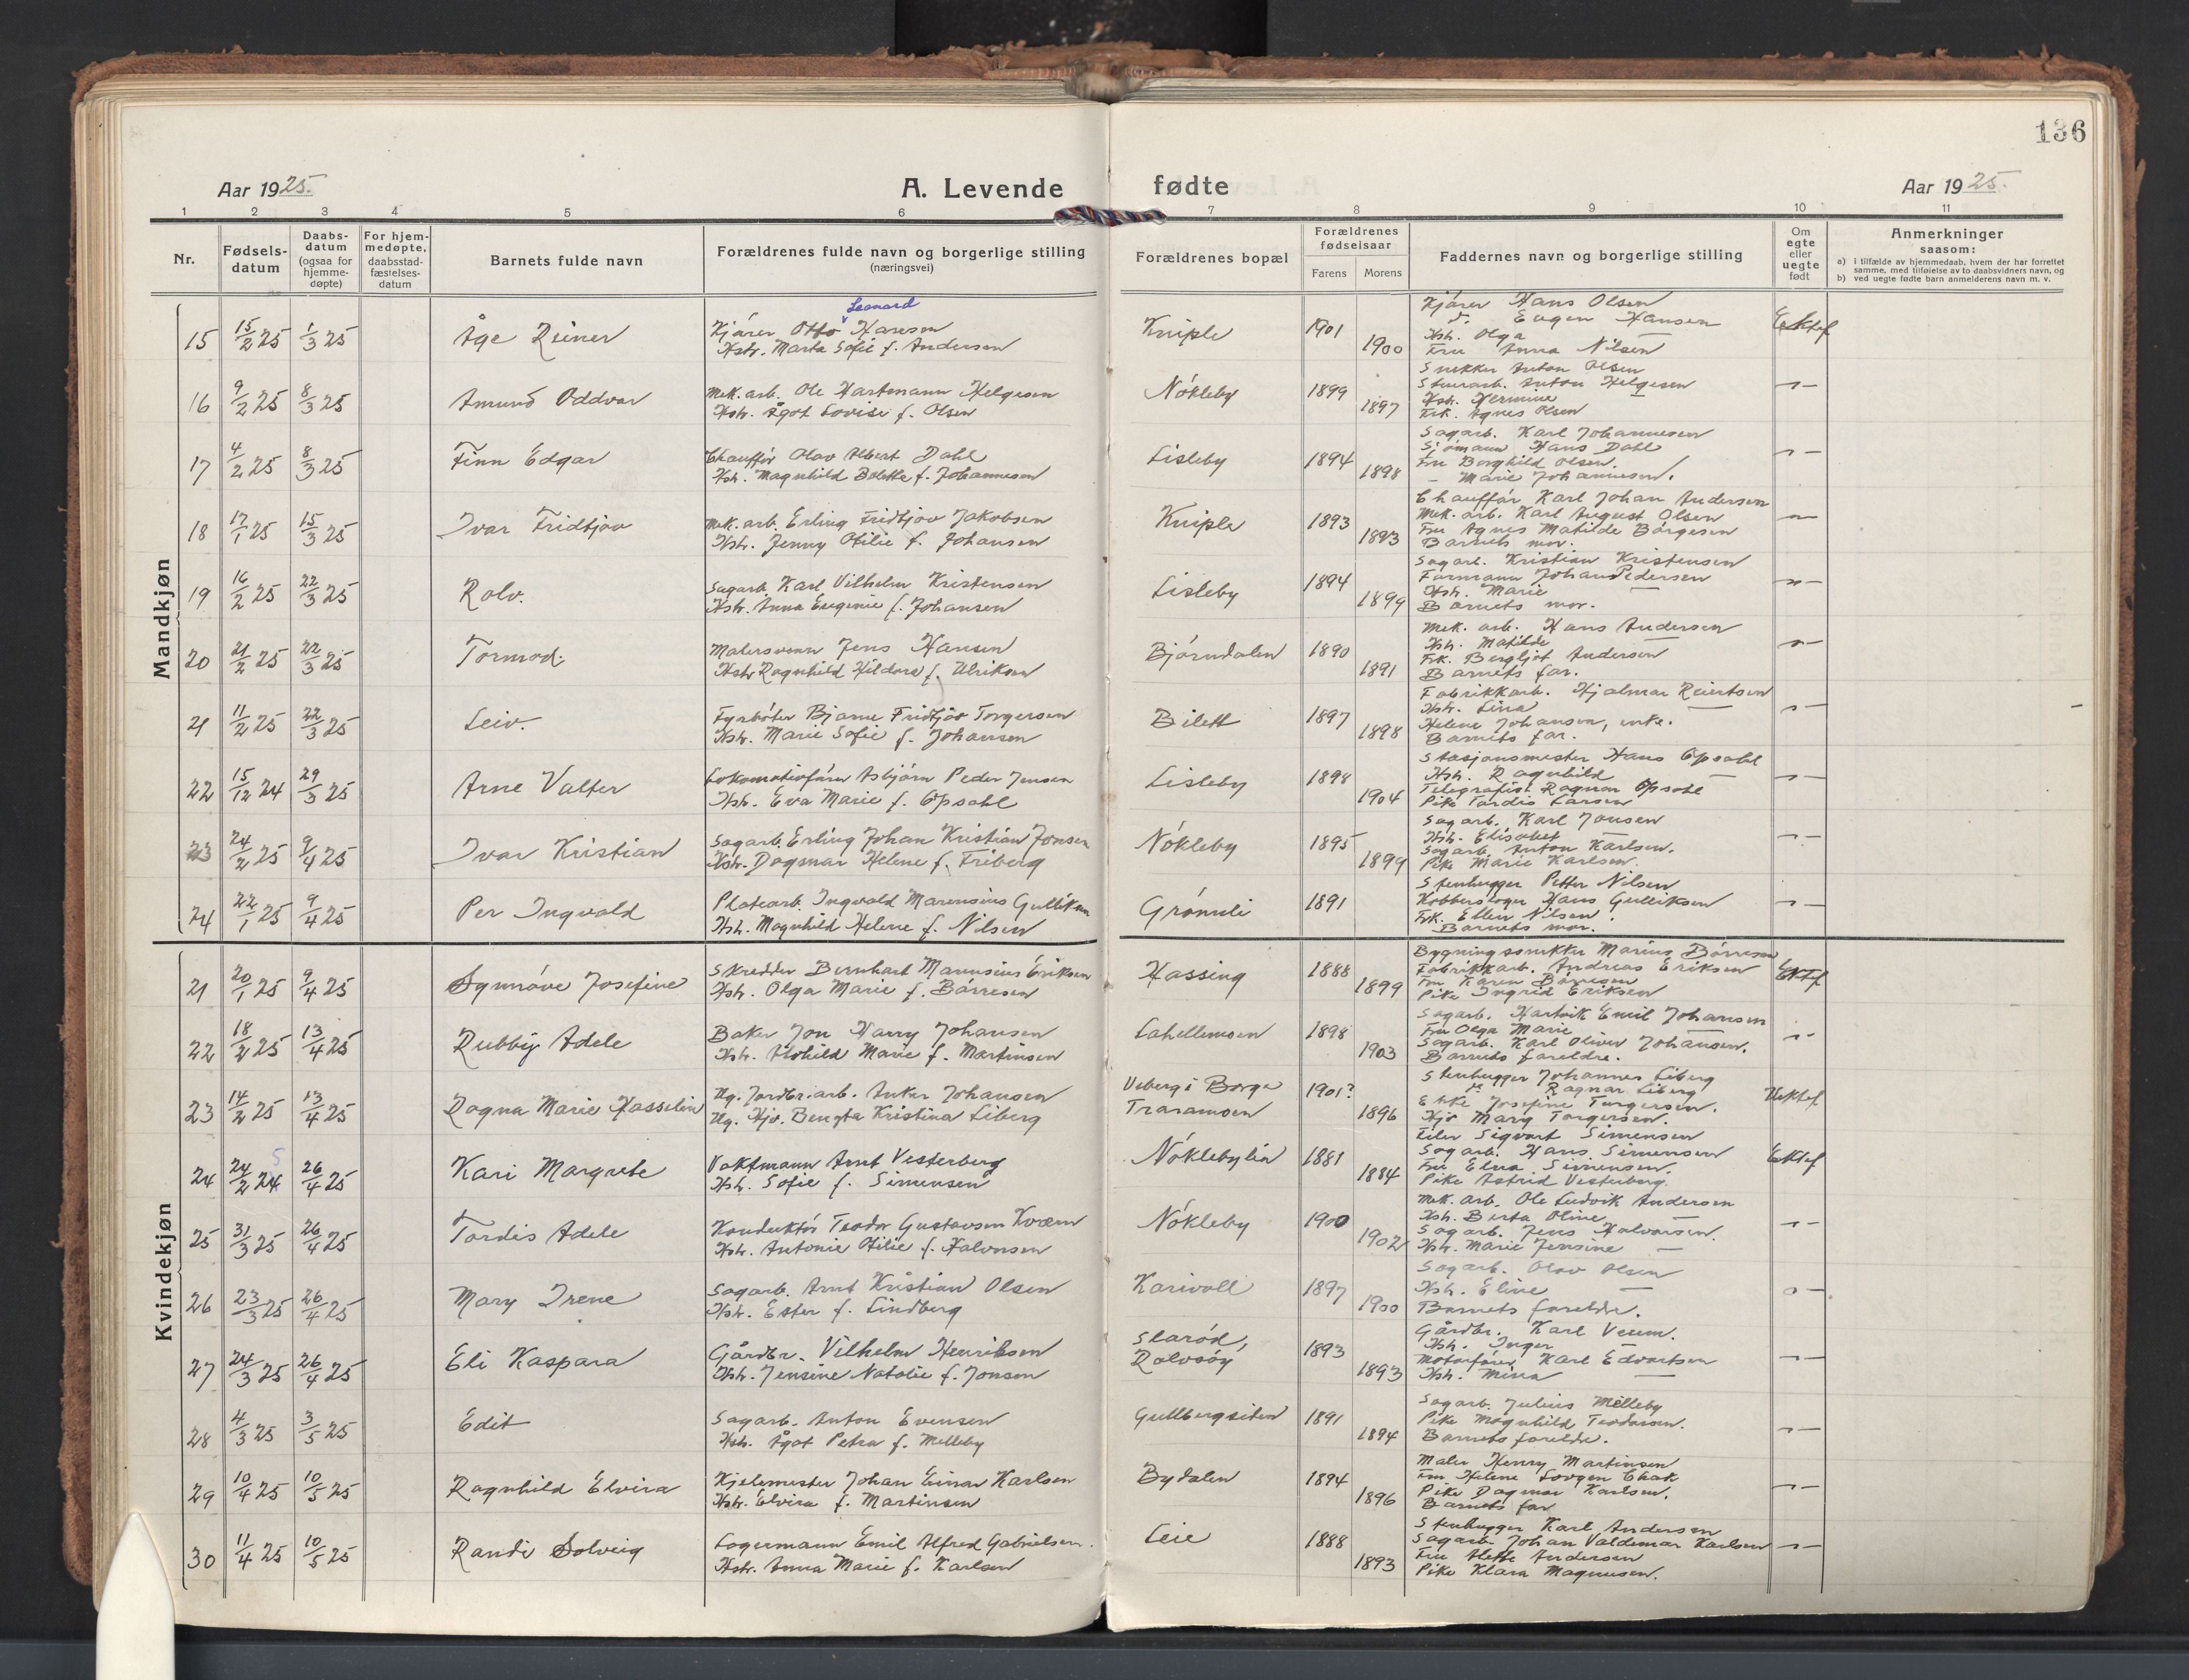 136
Aar 1925.
A. Levende fødte
Aar 1925.
1 2 3 4 5 6 7 8 9 10 11
Nr.
Fødsels-
datum
Daabs-
datum
(ogsaa for
hjemme-
døpte)
For hjem-
medøpte,
daabsstad-
fæstelses-
datum
Barnets fulde navn
Forældrenes fulde navn og borgerlige stilling
(næringsvei)
Forældrenes bopæl
Forældrenes
fødselsaar
Farens Morens
Faddernes navn og borgerlige stilling
Om
egte
eller
uegte
født
Anmerkninger
saasom:
a) i tilfælde av hjemmedaab, hvem der har forrettet
samme, med tilføielse av to daabsvidners navn, og
b) ved uegte fødte barn anmelderens navn m. v.
Mandkjøn
15 15/2 25 1/3 25 Åge Reiner
Leonard
Kjører Otto Hansen
Hstr. Marta Sofie f. Andersen
Kniple 1901 1900
Kjører Hans Olsen
d. Eugen Hansen
Hstr. Olga —
Fru Anna Nilsen
Ektef
16 9/2 25 8/3 25 Amund Oddvar
Mek. arb. Ole Hartmann Helgesen
Hstr. Ågot Lovise f. Olsen
Nókleby 1899 1897
Snekker Anton Olsen
Stuerarb. Anton Helgesen
Hstr. Hermine —
Frk. Agnes Olsen
17 4/2 25 8/3 25 Finn Edgar
Chauffór Olav Albert Dahl
Hstr. Magnhild Bolette f. Johannesen
Lisleby 1894 1898
Sagarb. Karl Johannesen
Sjømann Hans Dahl
Fru Borghild Olsen.
— Marie Johannesen.
18 17/1 25 15/3 25 Ivar Fridtjov
Mek. arb. Erling Fridtjov Jakobsen
Hstr. Jenny Otilie f. Johansen
Kniple 1893 1893
Chauffór Karl Johan Andersen
Mek. arb. Karl August Olsen
Fru Agnes Matilde Børgesen
Barnets mor.
19 16/2 25 22/3 25 Rolv.
Sagarb. Karl Vilhelm Kristensen
Hstr. Anna Eugenie f. Johansen
Lisleby 1894 1899
Sagarb. Kristian Kristensen
Formann Johan Pedersen
Hstr. Marie —
Barnets mor.
20 21/2 25 22/3 25 Tormod.
Malersvenn Jens Hansen
Hstr. Ragnhild Hildora f. Ulriksen
Bjórndalen 1890 1891
Mek. arb. Hans Andersen
Hstr. Matilde —
Frk. Bergljot Andersen
Barnets far.
21 11/2 25 22/3 25 Leiv.
Fyrbóter Bjarne Fridtjov Torgersen
Hstr. Marie Sofie f. Johansen
Bilett 1897 1898
Fabrikkarb. Hjalmar Reiertsen
Hstr. Lina —
Helene Johansen, enke.
Barnets far.
22 15/12 24 29/3 25 Arne Valter
Lokomotivfórer Asbjórn Peder Jensen
Hstr. Eva Marie f. Opsahl
Lisleby 1898 1904
Stasjonsmester Hans Opsahl
Hstr. Ragnhild —
Telegrafist Ragnar Opsahl
Pike Tordis Larsen
23 24/2 25 9/4 25 Ivar Kristian
Sagarb. Erling Johan Kristian Jonsen
Hstr. Dagmar Helene f. Friberg
Nókleby 1895 1899
Sagarb. Karl Jonsen
Hstr. Elisabet —
Sagarb. Anton Karlsen.
Pike Marie Karlsen.
24 22/1 25 9/4 25 Per Ingvald
Platearb. Ingvald Marensius Gulliksen
Hstr. Magnhild Helene f. Nilsen
Grónnli 1891
Stenhugger Petter Nilsen
Kobberslager Hans Gulliksen
Frk. Ellen Nilsen.
Barnets mor.
Kvindekjøn
21 20/1 25 9/4 25 Synnóve Josefine
Skredder Bernhart Marensius Eriksen
Hstr. Olga Marie f. Bórresen
Hassing 1888 1899
Bygningssnekker Marius Bórresen
Fabrikkarb. Andreas Eriksen
Fru Karen Bórresen
Pike Ingrid Eriksen
Ektef
22 18/2 25 13/4 25 Rubby Adele
Baker Jon Harry Johansen
Hstr. Alvhild Marie f. Martinsen
Lahellemoen 1898 1903
Sagarb. Hartvik Emil Johansen
Fru Olga Marie —
Sagarb. Karl Oliver Johansen.
Barnets foreldre.
23 14/2 25 13/4 25 Ragna Marie Hasselin
Ug. Jordbr.arb. Anker Johansen
Ug. Hjv. Bengta Kristina Liberg
Veberg i Borge
Traramoen
1901? 1896
Stenhugger Johannes Liberg
do Ragnar Liberg
Enke Josefine Torgersen.
Hjv Mary Torgersen.
Uektef
24 24/2 24 5 26/4 25 Kari Margrete
Vaktmann Arnt Vesterberg
Hstr. Sofie f. Simensen
Nóklebylia 1881 1884
Filer Sigvart Simensen
Sagarb. Hans Simensen
Fru Elna Simensen.
Pike Astrid Vesterberg.
Ektef
25 31/3 25 26/4 25 Tordis Adele
Konduktór Teodor Gustavsen Kværn
Hstr. Antonie Otilie f. Halvorsen
Nókleby 1900 1902
Mek. arb. Ole Ludvik Andersen
Hstr. Berta Oline —
Sagarb. Jens Halvorsen.
Hstr. Marie Jensine —
26 23/3 25 26/4 25 Mary Irene
Sagarb. Arnt Kristian Olsen
Hstr. Ester f. Lindberg
Karivoll 1897 1900
Sagarb. Olav Olsen
Hstr. Eline —
Barnets foreldre.
27 24/3 25 26/4 25 Eli Kaspara
Gårdbr. Vilhelm Henriksen
Hstr. Jensine Natalie f. Jonsen
Slaród,
Rolvsóy
1893 1893
Gårdbr. Karl Veum.
Hstr. Inger —
Motorfórer Karl Edvartsen
Hstr. Mina —
28 4/3 25 3/5 25 Edit
Sagarb. Anton Evensen
Hstr. Ågot Petra f. Melleby
Gullbergseten 1891 1894
Sagarb. Julius Melleby
Pike Magnhild Teodorsen.
Barnets foreldre.
29 10/4 25 10/5 25 Ragnhild Elvira
Kjelemester Johan Einar Karlsen
Hstr. Elvira f. Martinsen
Bydalen 1894 1896
Maler Henry Martinsen
Fru Helene
Pike Dagmar Karlsen.
Barnets far
30 11/4 25 10/5 25 Randi Solveig
Lagermann Emil Alfred Gabrielsen.
Hstr. Anna Marie f. Karlsen
Leie 1888 1893
Stenhugger Karl Andersen
Sagarb. Johan Valdemar Karlsen
Fru Alette Andersen
Pike Klara Magnusen.